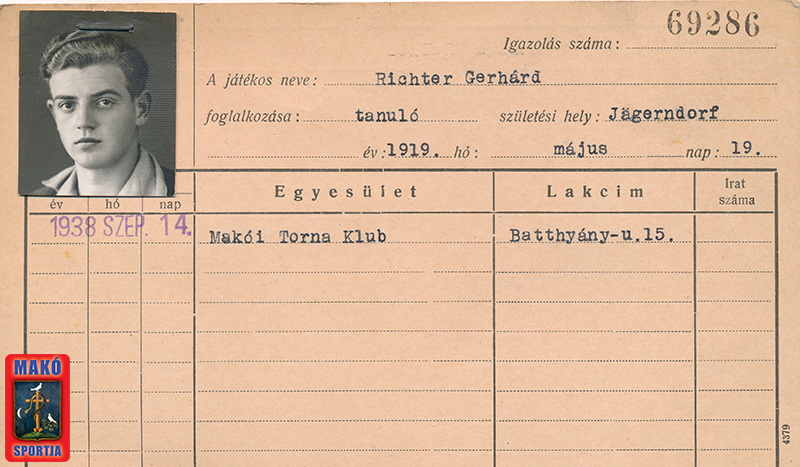 69286
Igazolás száma:
A játékos neve: Richter Gerhárd
foglalkozása: tanuló születési hely: Jägerndorf
év: 1919. hó: május nap: 19.
év hó nap Egyesület Lakcim Irat száma
1938 SZEP. 14. Makói Torna Klub Batthyány-u.15.
MAKÓ
SPORTJA
4379